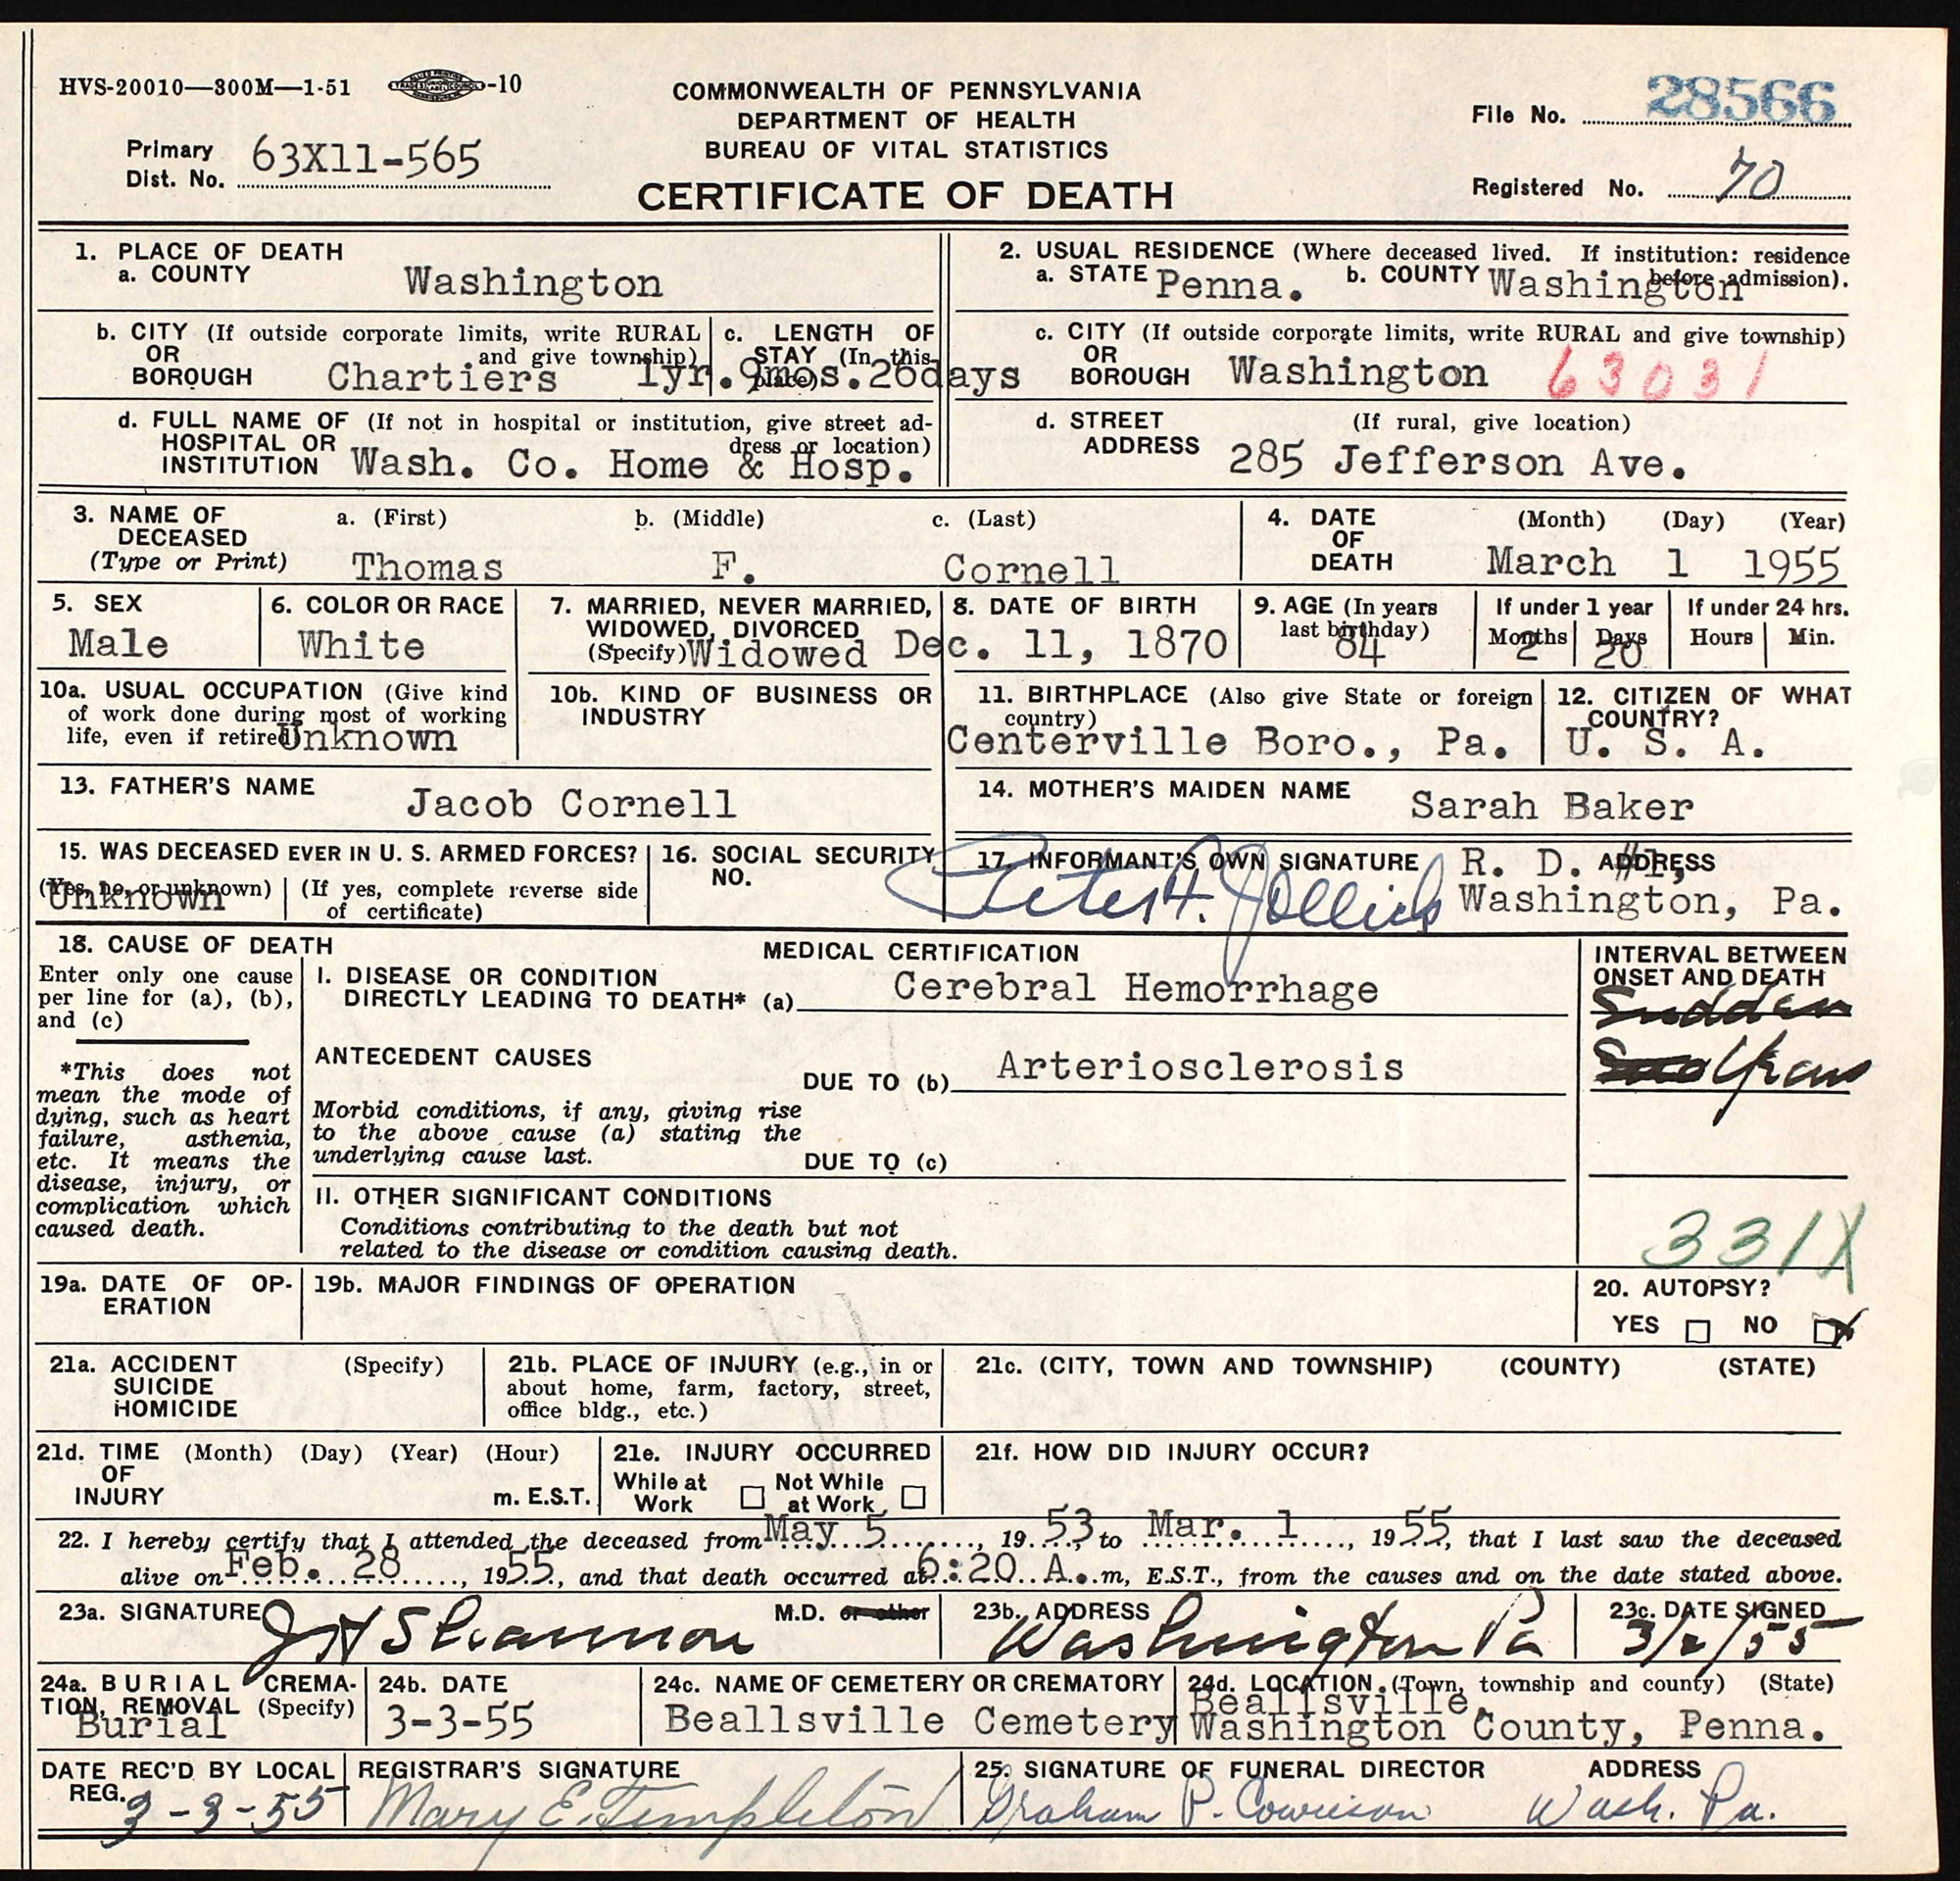 HVS-20010—300M—1-51 -10
COMMONWEALTH OF PENNSYLVANIA
DEPARTMENT OF HEALTH
BUREAU OF VITAL STATISTICS
CERTIFICATE OF DEATH
File No. 28566
Primary Dist. No. 63X11-565
Registered No. 70
1. PLACE OF DEATH
a. COUNTY Washington
2. USUAL RESIDENCE (Where deceased lived. If institution: residence before admission).
a. STATE Penna. b. COUNTY Washington
b. CITY (If outside corporate limits, write RURAL and give township)
OR
BOROUGH Chartiers
c. LENGTH OF STAY (In this place)
1yr.9mos.26days
c. CITY (If outside corporate limits, write RURAL and give township)
OR
BOROUGH Washington 63031
d. FULL NAME OF (If not in hospital or institution, give street address or location)
HOSPITAL OR
INSTITUTION Wash. Co. Home & Hosp.
d. STREET (If rural, give location)
ADDRESS 285 Jefferson Ave.
3. NAME OF DECEASED a. (First) b. (Middle) c. (Last)
(Type or Print) Thomas F. Cornell
4. DATE OF DEATH (Month) (Day) (Year)
March 1 1955
5. SEX
Male
6. COLOR OR RACE
White
7. MARRIED, NEVER MARRIED,
WIDOWED, DIVORCED
(Specify) Widowed
8. DATE OF BIRTH
Dec. 11, 1870
9. AGE (In years last birthday)
84
If under 1 year
Months 2 Days 20
If under 24 hrs.
Hours Min.
10a. USUAL OCCUPATION (Give kind
of work done during most of working
life, even if retired) Unknown
10b. KIND OF BUSINESS OR
INDUSTRY
11. BIRTHPLACE (Also give State or foreign country)
Centerville Boro., Pa.
12. CITIZEN OF WHAT COUNTRY?
U. S. A.
13. FATHER'S NAME
Jacob Cornell
14. MOTHER'S MAIDEN NAME
Sarah Baker
15. WAS DECEASED EVER IN U. S. ARMED FORCES?
(Yes, no, or unknown) (If yes, complete reverse side of certificate)
Unknown
16. SOCIAL SECURITY
NO.
17. INFORMANT'S OWN SIGNATURE ADDRESS
Peter H. Jollick R. D. #1,
Washington, Pa.
18. CAUSE OF DEATH
Enter only one cause
per line for (a), (b),
and (c)
*This does not
mean the mode of
dying, such as heart
failure, asthenia,
etc. It means the
disease, injury, or
complication which
caused death.
MEDICAL CERTIFICATION
I. DISEASE OR CONDITION
DIRECTLY LEADING TO DEATH* (a) Cerebral Hemorrhage
ANTECEDENT CAUSES
DUE TO (b) Arteriosclerosis
Morbid conditions, if any, giving rise
to the above cause (a) stating the
underlying cause last.
DUE TO (c)
II. OTHER SIGNIFICANT CONDITIONS
Conditions contributing to the death but not
related to the disease or condition causing death.
INTERVAL BETWEEN
ONSET AND DEATH
Sudden
Years
331X
19a. DATE OF OP-
ERATION
19b. MAJOR FINDINGS OF OPERATION
20. AUTOPSY?
YES NO X
21a. ACCIDENT (Specify)
SUICIDE
HOMICIDE
21b. PLACE OF INJURY (e.g., in or
about home, farm, factory, street,
office bldg., etc.)
21c. (CITY, TOWN AND TOWNSHIP) (COUNTY) (STATE)
21d. TIME (Month) (Day) (Year) (Hour)
OF
INJURY m. E.S.T.
21e. INJURY OCCURRED
While at Work Not While at Work
21f. HOW DID INJURY OCCUR?
22. I hereby certify that I attended the deceased from May 5, 1953, to Mar. 1, 1955, that I last saw the deceased
alive on Feb. 28, 1955, and that death occurred at 6:20 A.m, E.S.T., from the causes and on the date stated above.
23a. SIGNATURE M.D. or other
J H Shannon
23b. ADDRESS
Washington Pa
23c. DATE SIGNED
3/2/55
24a. BURIAL CREMA-
TION, REMOVAL (Specify)
Burial
24b. DATE
3-3-55
24c. NAME OF CEMETERY OR CREMATORY
Beallsville Cemetery
24d. LOCATION (Town, township and county) (State)
Beallsville,
Washington County, Penna.
DATE REC'D BY LOCAL
REG. 3-3-55
REGISTRAR'S SIGNATURE
Mary E. Templeton
25. SIGNATURE OF FUNERAL DIRECTOR ADDRESS
Graham P. Cowieson Wash. Pa.